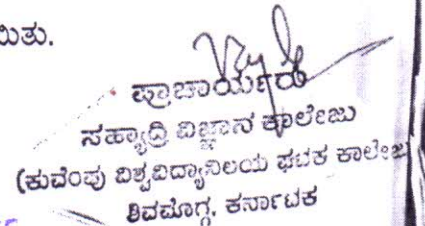 ಯಿತು.
ಪ್ರಾಚಾರ್ಯರು
ಸಹ್ಯಾದ್ರಿ ವಿಜ್ಞಾನ ಕಾಲೇಜು
(ಕುವೆಂಪು ವಿಶ್ವವಿದ್ಯಾನಿಲಯ ಘಟಕ ಕಾಲೇಜು
ಶಿವಮೊಗ್ಗ, ಕರ್ನಾಟಕ